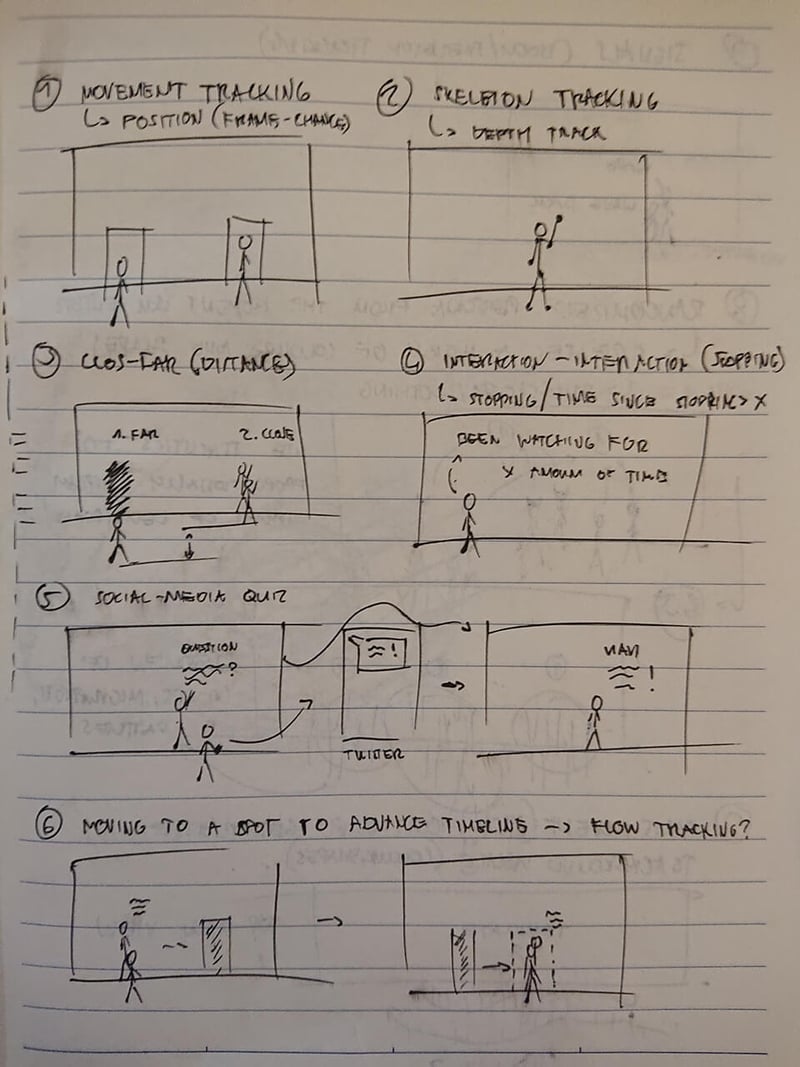 1 MOVEMENT TRACKING
↳ POSITION (FRAME-CHANGE)
2 SKELETON TRACKING
↳ DEPTH TRACK
3 CLOS-FAR (DISTANCE)
1. FAR
2. CLOSE
4 INTERACTION - INTERACTION (STOPPING)
↳ STOPPING/TIME SINCE STOPPING > X
BEEN WATCHING FOR
X AMOUNT OF TIME
5 SOCIAL-MEDIA QUIZ
QUESTION
?
!
TWITTER
!
6 MOVING TO A SPOT TO ADVANCE TIMELINE → FLOW TRACKING?